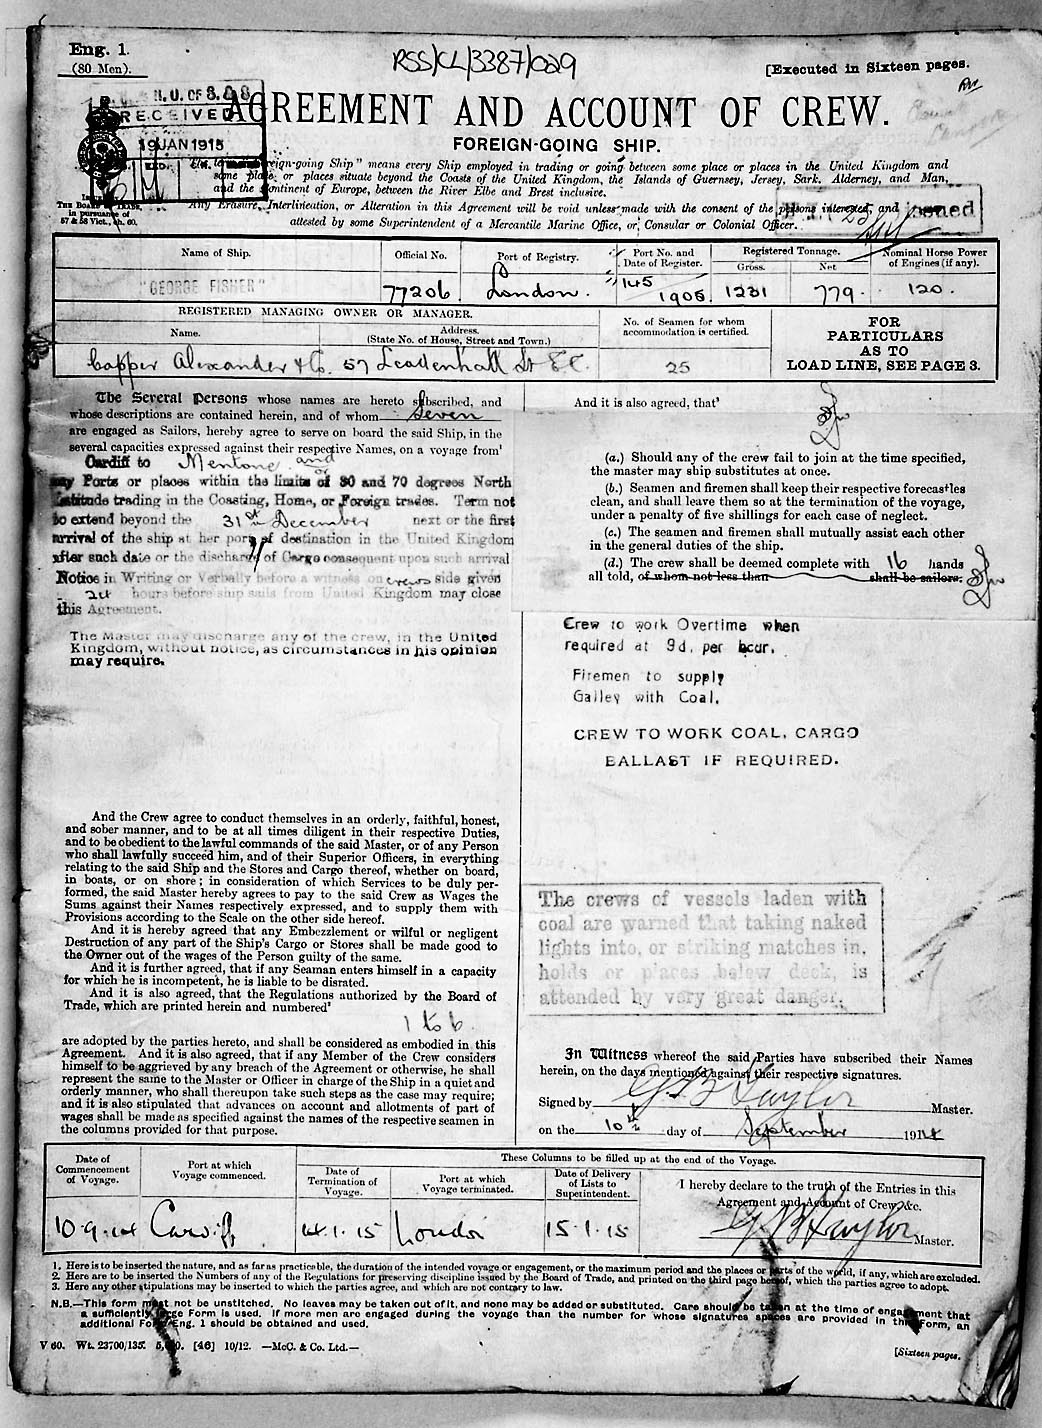 Eng. 1.
(80 Men).
RSS/CL/3387/029
[Executed in Sixteen pages.
R.G. & R.U. OF S. & S.
RECEIVED
19 JAN 1915
AGREEMENT AND ACCOUNT OF CREW.
FOREIGN-GOING SHIP.
"Foreign-going Ship" means every Ship employed in trading or going between some place or places in the United Kingdom and
some place or places situate beyond the Coasts of the United Kingdom, the Islands of Guernsey, Jersey, Sark, Alderney, and Man,
and the Continent of Europe, between the River Elbe and Brest inclusive.
Any Erasure, Interlineation, or Alteration in this Agreement will be void unless made with the consent of the persons interested, and
attested by some Superintendent of a Mercantile Marine Office, or, Consular or Colonial Officer.
Issued
THE BOARD OF TRADE,
in pursuance of
57 & 58 Vict., ch. 60.
issued
Name of Ship.
Official No.
Port of Registry.
Port No. and Date of Register.
Registered Tonnage.
Gross.
Net
Nominal Horse Power of Engines (if any).
"GEORGE FISHER"
77206
London.
145
1905
1231
779.
120.
REGISTERED MANAGING OWNER OR MANAGER.
Name.
Address.
(State No. of House, Street and Town.)
No. of Seamen for whom accommodation is certified.
FOR
PARTICULARS
AS TO
LOAD LINE, SEE PAGE 3.
Capper Alexander & Co. 57 Leadenhall St E.C.
25
The Several Persons whose names are hereto subscribed, and
whose descriptions are contained herein, and of whom Seven
are engaged as Sailors, hereby agree to serve on board the said Ship, in the
several capacities expressed against their respective Names, on a voyage from¹
Cardiff to Mentone and or
any Ports or places within the limits of 80 and 70 degrees North
Latitude trading in the Coasting, Home, or Foreign trades. Term not
to extend beyond the 31st December next or the first
arrival of the ship at her port of destination in the United Kingdom
after such date or the discharge of Cargo consequent upon such arrival
Notice in Writing or Verbally before a witness on crews side given
24 hours before ship sails from United Kingdom may close
this Agreement.
The Master may discharge any of the crew, in the United
Kingdom, without notice, as circumstances in his opinion
may require.
And the Crew agree to conduct themselves in an orderly, faithful, honest,
and sober manner, and to be at all times diligent in their respective Duties,
and to be obedient to the lawful commands of the said Master, or of any Person
who shall lawfully succeed him, and of their Superior Officers, in everything
relating to the said Ship and the Stores and Cargo thereof, whether on board,
in boats, or on shore; in consideration of which Services to be duly per-
formed, the said Master hereby agrees to pay to the said Crew as Wages the
Sums against their Names respectively expressed, and to supply them with
Provisions according to the Scale on the other side hereof.
And it is hereby agreed that any Embezzlement or wilful or negligent
Destruction of any part of the Ship's Cargo or Stores shall be made good to
the Owner out of the wages of the Person guilty of the same.
And it is further agreed, that if any Seaman enters himself in a capacity
for which he is incompetent, he is liable to be disrated.
And it is also agreed, that the Regulations authorized by the Board of
Trade, which are printed herein and numbered²
1 to 6
are adopted by the parties hereto, and shall be considered as embodied in this
Agreement. And it is also agreed, that if any Member of the Crew considers
himself to be aggrieved by any breach of the Agreement or otherwise, he shall
represent the same to the Master or Officer in charge of the Ship in a quiet and
orderly manner, who shall thereupon take such steps as the case may require;
and it is also stipulated that advances on account and allotments of part of
wages shall be made as specified against the names of the respective seamen in
the columns provided for that purpose.
And it is also agreed, that³
(a.) Should any of the crew fail to join at the time specified,
the master may ship substitutes at once.
(b.) Seamen and firemen shall keep their respective forecastles
clean, and shall leave them so at the termination of the voyage,
under a penalty of five shillings for each case of neglect.
(c.) The seamen and firemen shall mutually assist each other
in the general duties of the ship.
(d.) The crew shall be deemed complete with 16 hands
all told, of whom not less than shall be sailors.
Crew to work Overtime when
required at 9d. per hour.
Firemen to supply
Galley with Coal.
CREW TO WORK COAL, CARGO
BALLAST IF REQUIRED.
The crews of vessels laden with
coal are warned that taking naked
lights into, or striking matches in,
holds or places below deck, is
attended by very great danger.
In Witness whereof the said Parties have subscribed their Names
herein, on the days mentioned against their respective signatures.
Signed by G B Taylor Master.
on the 10th day of September 1914
Date of Commencement of Voyage.
Port at which Voyage commenced.
These Columns to be filled up at the end of the Voyage.
Date of Termination of Voyage.
Port at which Voyage terminated.
Date of Delivery of Lists to Superintendent.
I hereby declare to the truth of the Entries in this
Agreement and Account of Crew, &c.
10.9.14
Cardiff
14.1.15
London
15.1.15
G B Taylor Master.
1. Here is to be inserted the nature, and as far as practicable, the duration of the intended voyage or engagement, or the maximum period and the places or parts of the world, if any, which are excluded.
2. Here are to be inserted the Numbers of any of the Regulations for preserving discipline issued by the Board of Trade, and printed on the third page hereof, which the parties agree to adopt.
3. Here any other stipulations may be inserted to which the parties agree, and which are not contrary to law.
N.B.—This form must not be unstitched. No leaves may be taken out of it, and none may be added or substituted. Care should be taken at the time of engagement that
a sufficiently large Form is used. If more men are engaged during the voyage than the number for whose signatures spaces are provided in this Form, an
additional Form Eng. 1 should be obtained and used.
V 60. Wt. 23700/135. 5,000. [46] 10/12. —McC. & Co. Ltd.—
[Sixteen pages.